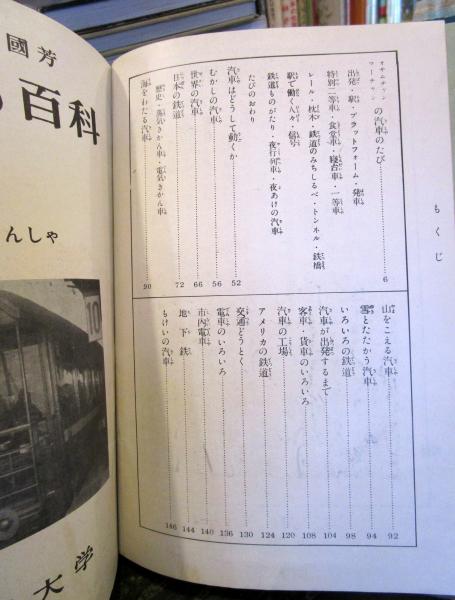 國芳
百科
んしゃ
10
大学
もくじ
オサムチャン
マーチャン の汽車のたび……6
出発・駅・プラットフォーム・発車
特別二等車・食堂車・寝台車・一等車
レール・枕木・鉄道のみちしるべ・トンネル・鉄橋
駅で働く人々・信号
鉄道ものがたり・夜行列車・夜あけの汽車
たびのおわり
汽車はどうして動くか……52
むかしの汽車……56
世界の汽車……66
日本の鉄道……72
歴史・蒸気きかん車・電気きかん車
海をわたる汽車……90
山をこえる汽車……92
雪とたたかう汽車……94
いろいろの鉄道……98
汽車が出発するまで……104
客車・貨車のいろいろ……108
汽車の工場……120
アメリカの鉄道……124
交通どうとく……130
電車のいろいろ……136
市内電車……140
地下鉄……144
もけいの汽車……146